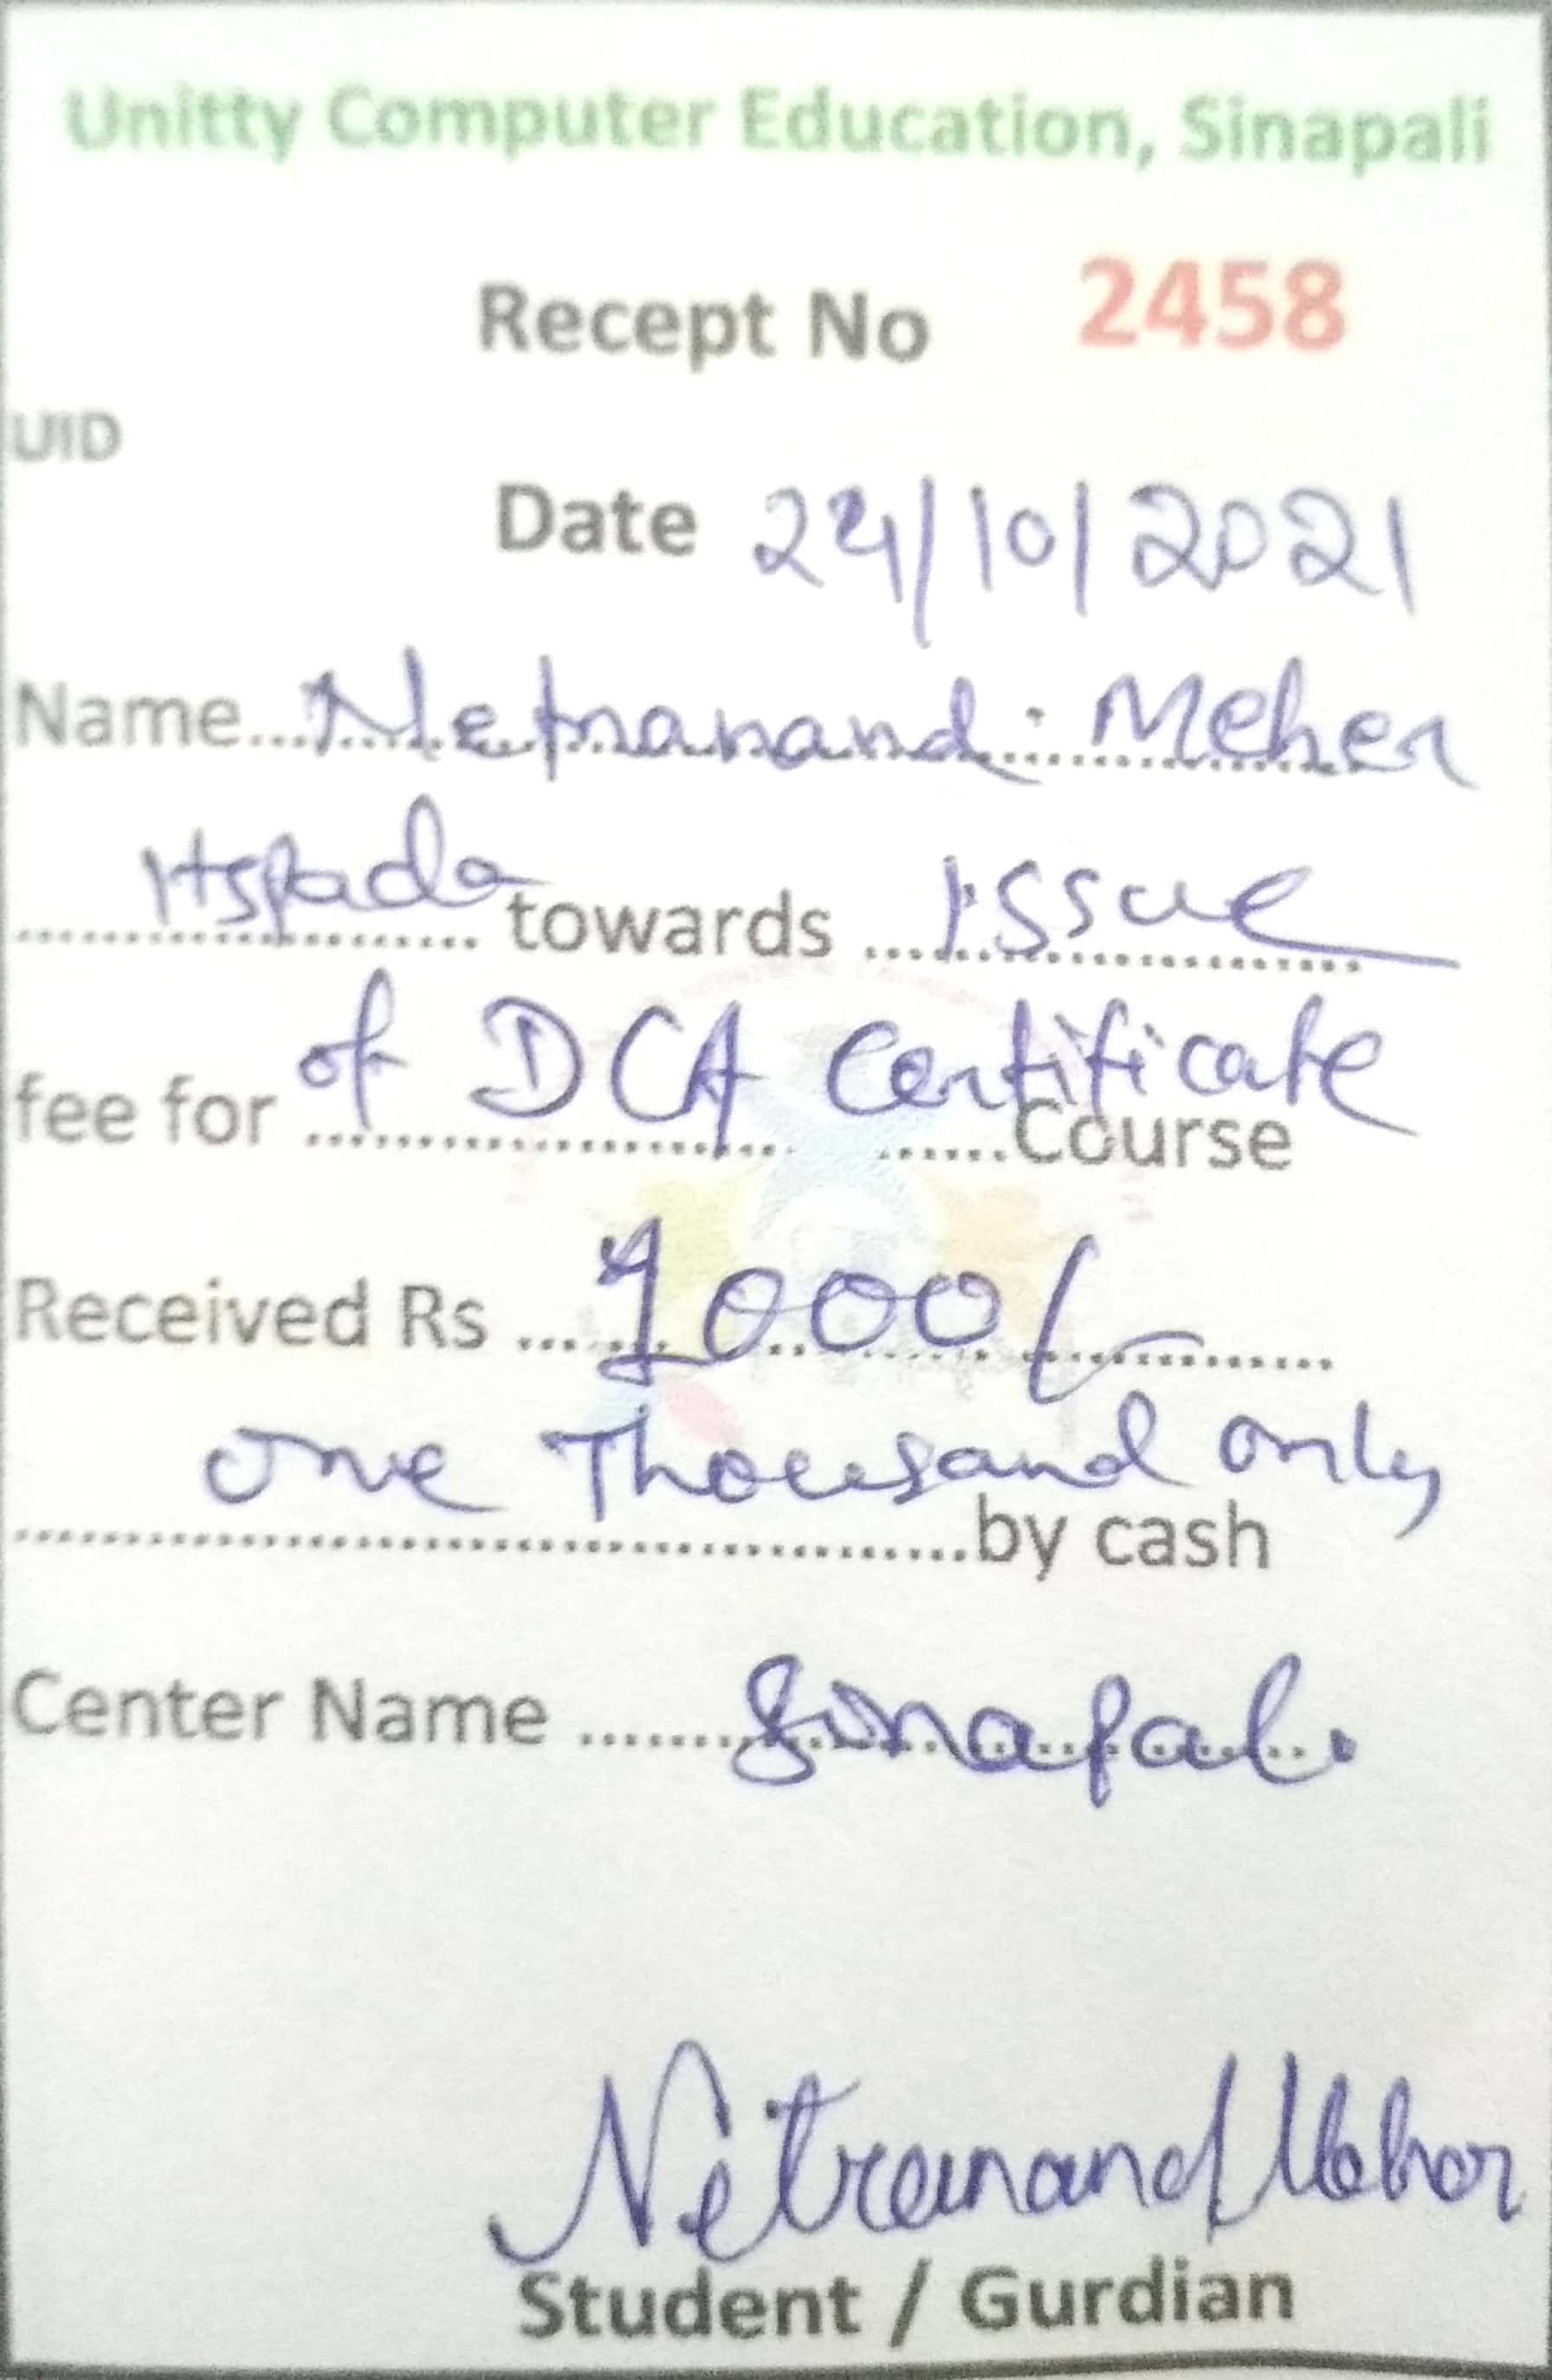 Unitty Computer Education, Sinapali
Recept No 2458
UID
Date 24/10/2021
Name... Netranand Meher
Itspada towards ... Issue
fee for of DCA Certificate Course
Received Rs ... 1000/-
One Thousand only
by cash
Center Name ... Sinapali
Netranand Meher
Student / Gurdian